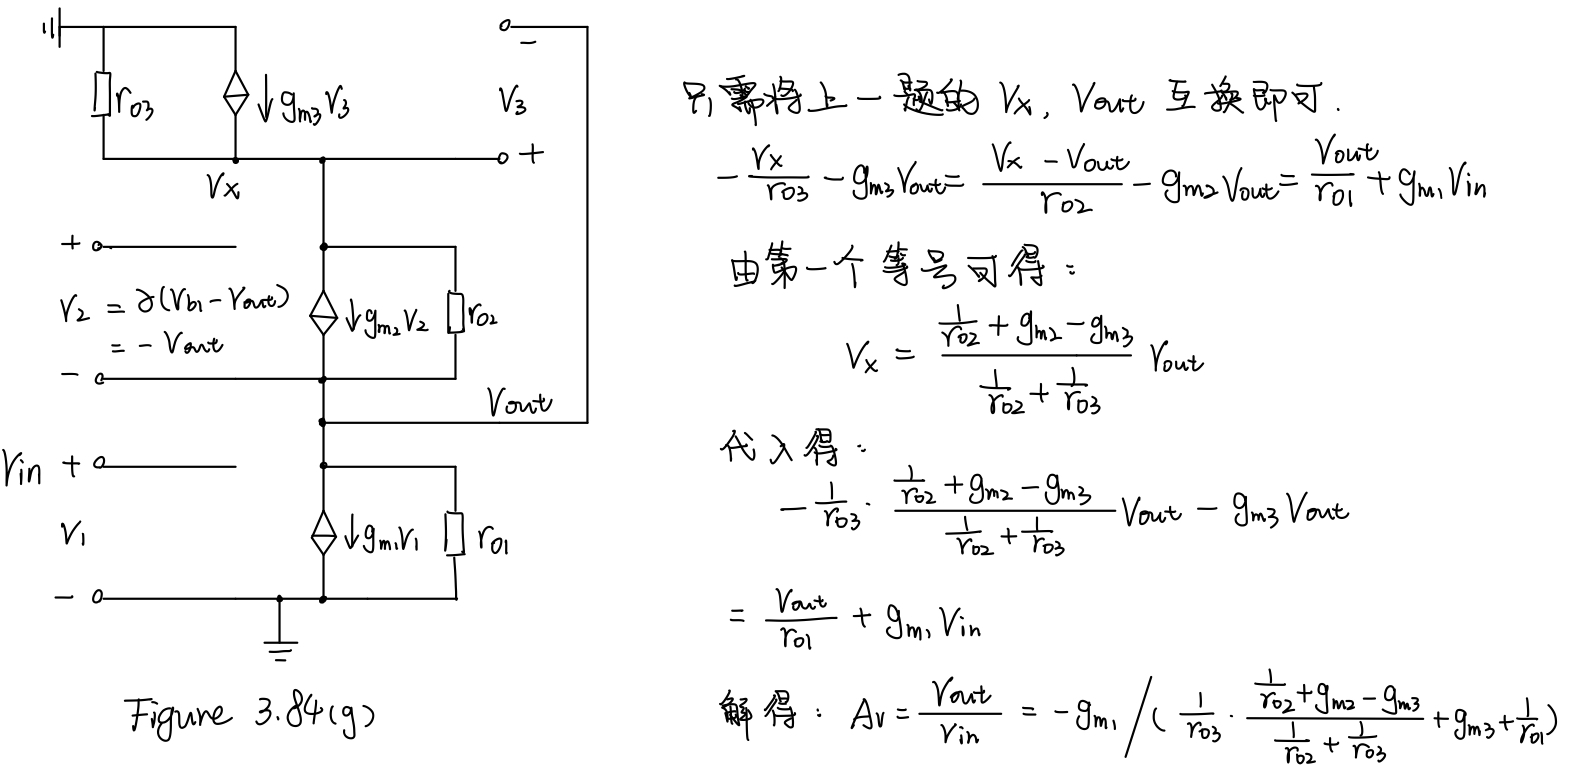 r03
gm3V3
Vx
V3
-
+
+
V2 = ∂(Vb1 - Vout)
= - Vout
-
gm2V2
r02
Vout
Vin +
V1
-
gm1V1
r01
Figure 3.84(g)
只需将上一题的 Vx, Vout 互换即可.
- Vx/r03 - gm3Vout = (Vx - Vout)/r02 - gm2Vout = Vout/r01 + gm1Vin
由第一个等号可得:
Vx = (1/r02 + gm2 - gm3)/(1/r02 + 1/r03) Vout
代入得:
- 1/r03 · (1/r02 + gm2 - gm3)/(1/r02 + 1/r03) Vout - gm3Vout
= Vout/r01 + gm1Vin
解得: Av = Vout/Vin = - gm1 / ( 1/r03 · (1/r02 + gm2 - gm3)/(1/r02 + 1/r03) + gm3 + 1/r01 )